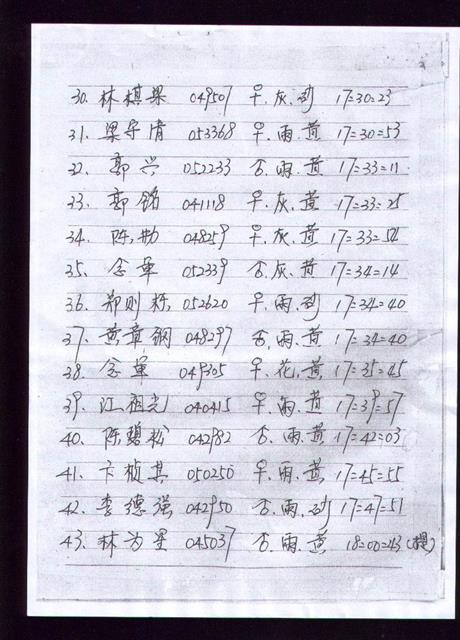 30. 林棋果 049507 早.灰.砂 17=30=23
31. 梁守清 053368 早.雨.黄 17=30=53
32. 郭兴 052233 否.雨.黄 17=33=11
33. 郭铭 041118 早.灰.黄 17=33=25
34. 陈勤 048259 早.灰.黄 17=33=54
35. 念军 052339 否.灰.黄 17=34=14
36. 郑则栋 052620 早.雨.砂 17=34=40
37. 黄章钢 048297 否.雨.黄 17=34=40
38. 念军 049305 早.花.黄 17=35=45
39. 江祖光 040415 早.雨.黄 17=39=57
40. 陈碧松 042982 否.雨.黄 17=42=03
41. 卞桢其 050250 早.雨.黄 17=45=55
42. 李德强 042950 否.雨.砂 17=47=51
43. 林为星 045037 否.雨.黄 18=00=43